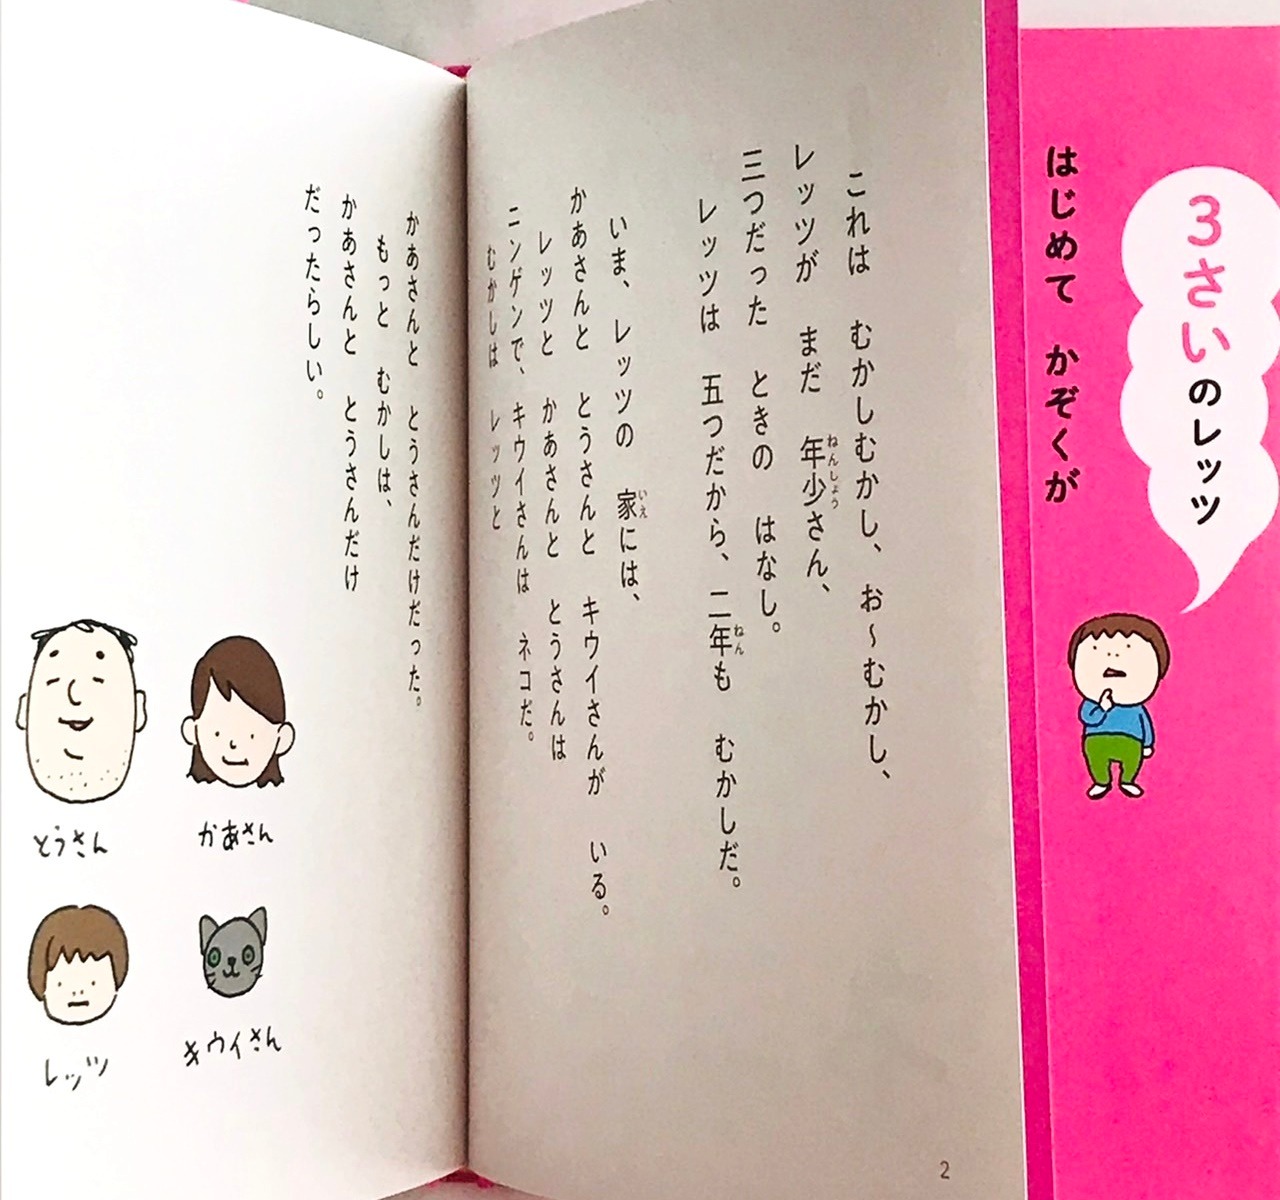 3さいのレッツ
はじめて かぞくが
これは むかしむかし、お～むかし、
レッツが まだ 年少さん、
ねんしょう
三つだった ときの はなし。
レッツは 五つだから、二年も むかしだ。
ねん
いま、レッツの 家には、
いえ
かあさんと とうさんと キウイさんが いる。
レッツと かあさんと とうさんは
ニンゲンで、キウイさんは ネコだ。
むかしは レッツと
かあさんと とうさんだけだった。
もっと むかしは、
かあさんと とうさんだけ
だったらしい。
かあさん
とうさん
キウイさん
レッツ
2